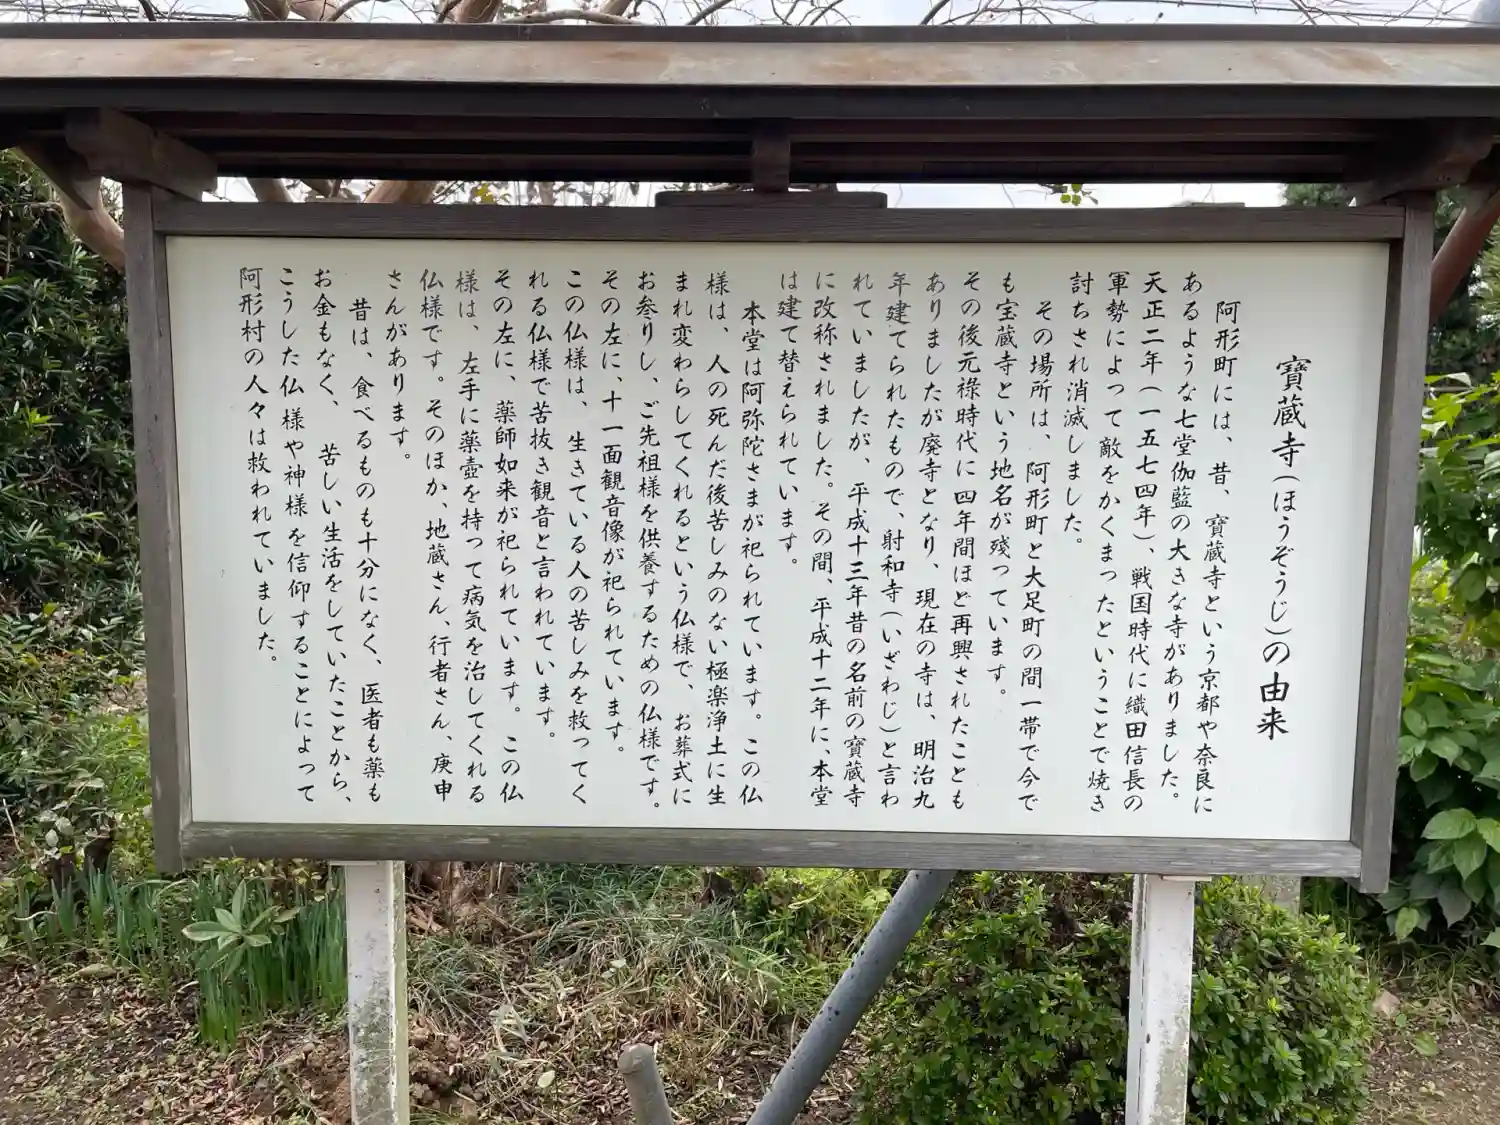 寶蔵寺(ほうぞうじ)の由来
阿形町には、昔、寶蔵寺という京都や奈良に
あるような七堂伽藍の大きな寺がありました。
天正二年(一五七四年)、戦国時代に織田信長の
軍勢によって敵をかくまったということで焼き
討ちされ消滅しました。
その場所は、阿形町と大足町の間一帯で今で
も宝蔵寺という地名が残っています。
その後元禄時代に四年間ほど再興されたことも
ありましたが廃寺となり、現在の寺は、明治九
年建てられたもので、射和寺(いざわじ)と言わ
れていましたが、平成十三年昔の名前の寶蔵寺
に改称されました。その間、平成十二年に、本堂
は建て替えられています。
本堂は阿弥陀さまが祀られています。この仏
様は、人の死んだ後苦しみのない極楽浄土に生
まれ変わらしてくれるという仏様で、お葬式に
お参りし、ご先祖様を供養するための仏様です。
その左に、十一面観音像が祀られています。
この仏様は、生きている人の苦しみを救ってく
れる仏様で苦抜き観音と言われています。
その左に、薬師如来が祀られています。この仏
様は、左手に薬壺を持って病気を治してくれる
仏様です。そのほか、地蔵さん、行者さん、庚申
さんがあります。
昔は、食べるものも十分になく、医者も薬も
お金もなく、苦しい生活をしていたことから、
こうした仏様や神様を信仰することによって
阿形村の人々は救われていました。